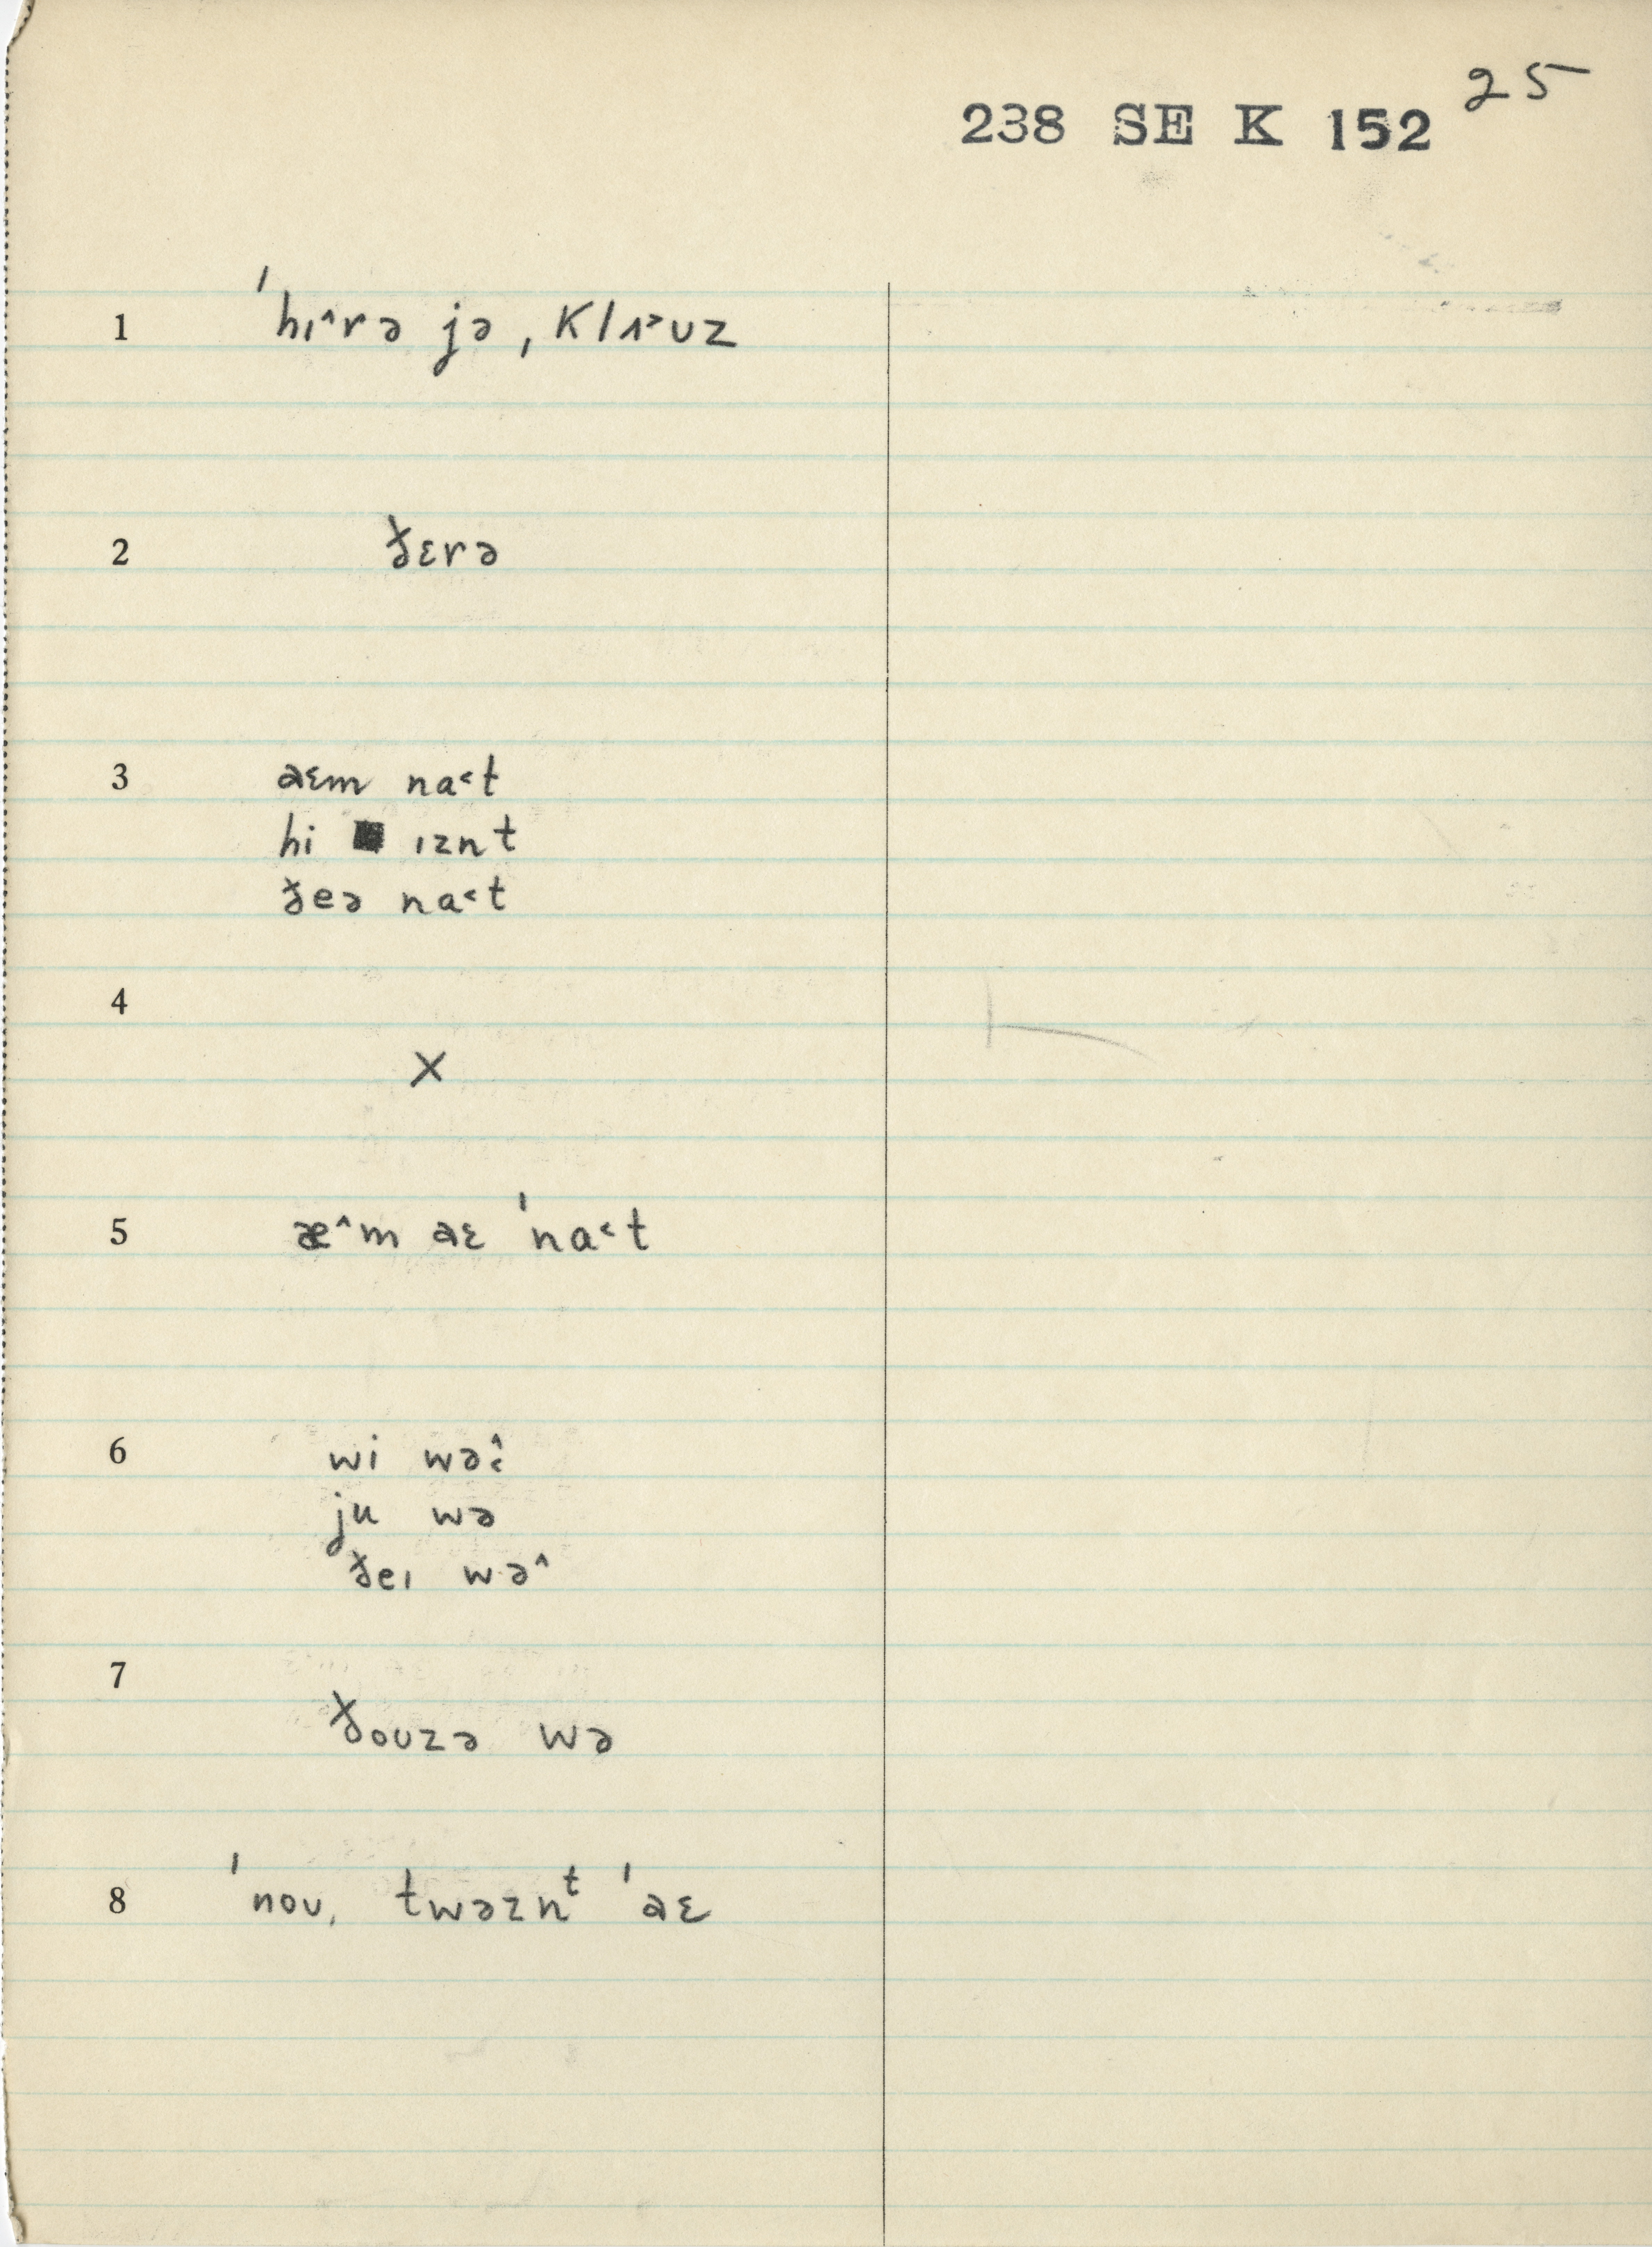 25
238 SE K 152
1 ˈhɪ^rə jə, klɒ˃ʊz
2 ðɛrə
3 aɛm na˂t
hi ɪznt
ðeə na˂t
4
X
5 æ^m aɛ ˈna˂t
6 wi wə^˂
ju wə
ðeɪ wə^
7 ðoʊzə wə
8 ˈnoʊ, twəznᵗ ˈaɛ